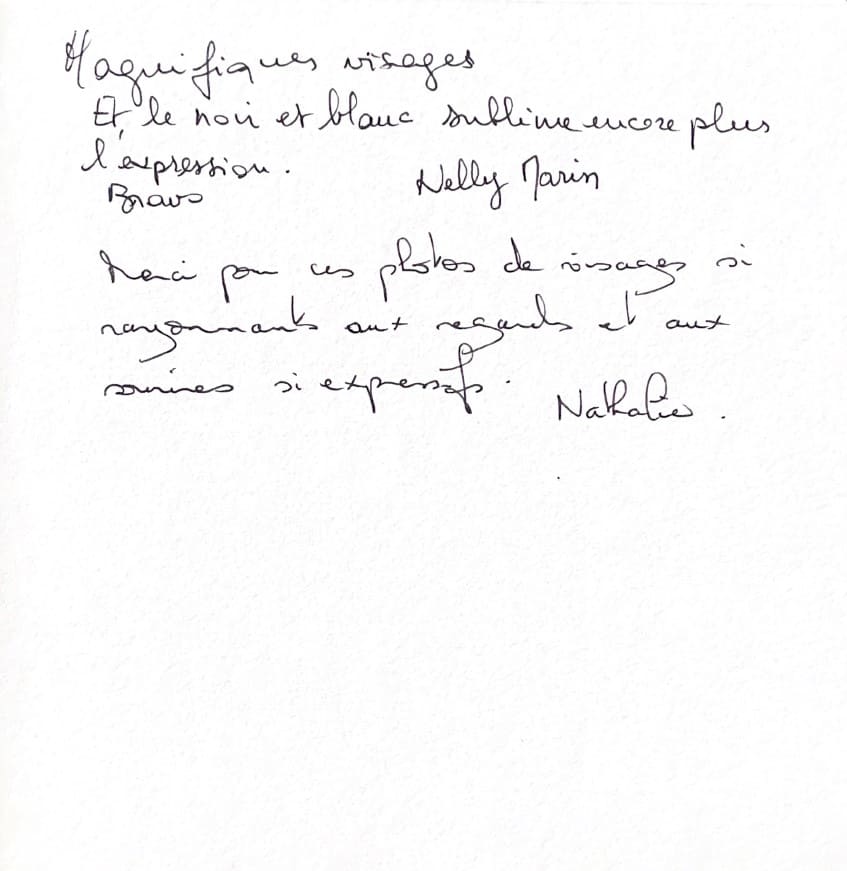 Magnifiques visages
Et le noir et blanc sublime encore plus
l'expression.
Nelly Marin
Bravo
Merci pour ces photos de visages si
rayonnants aux regards et aux
sourires si expressifs.
Nathalie.